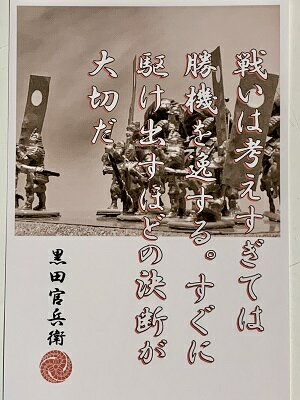 戦いは考えすぎては
勝機を逸する。すぐに
駆け出すほどの決断が
大切だ
黒田官兵衛